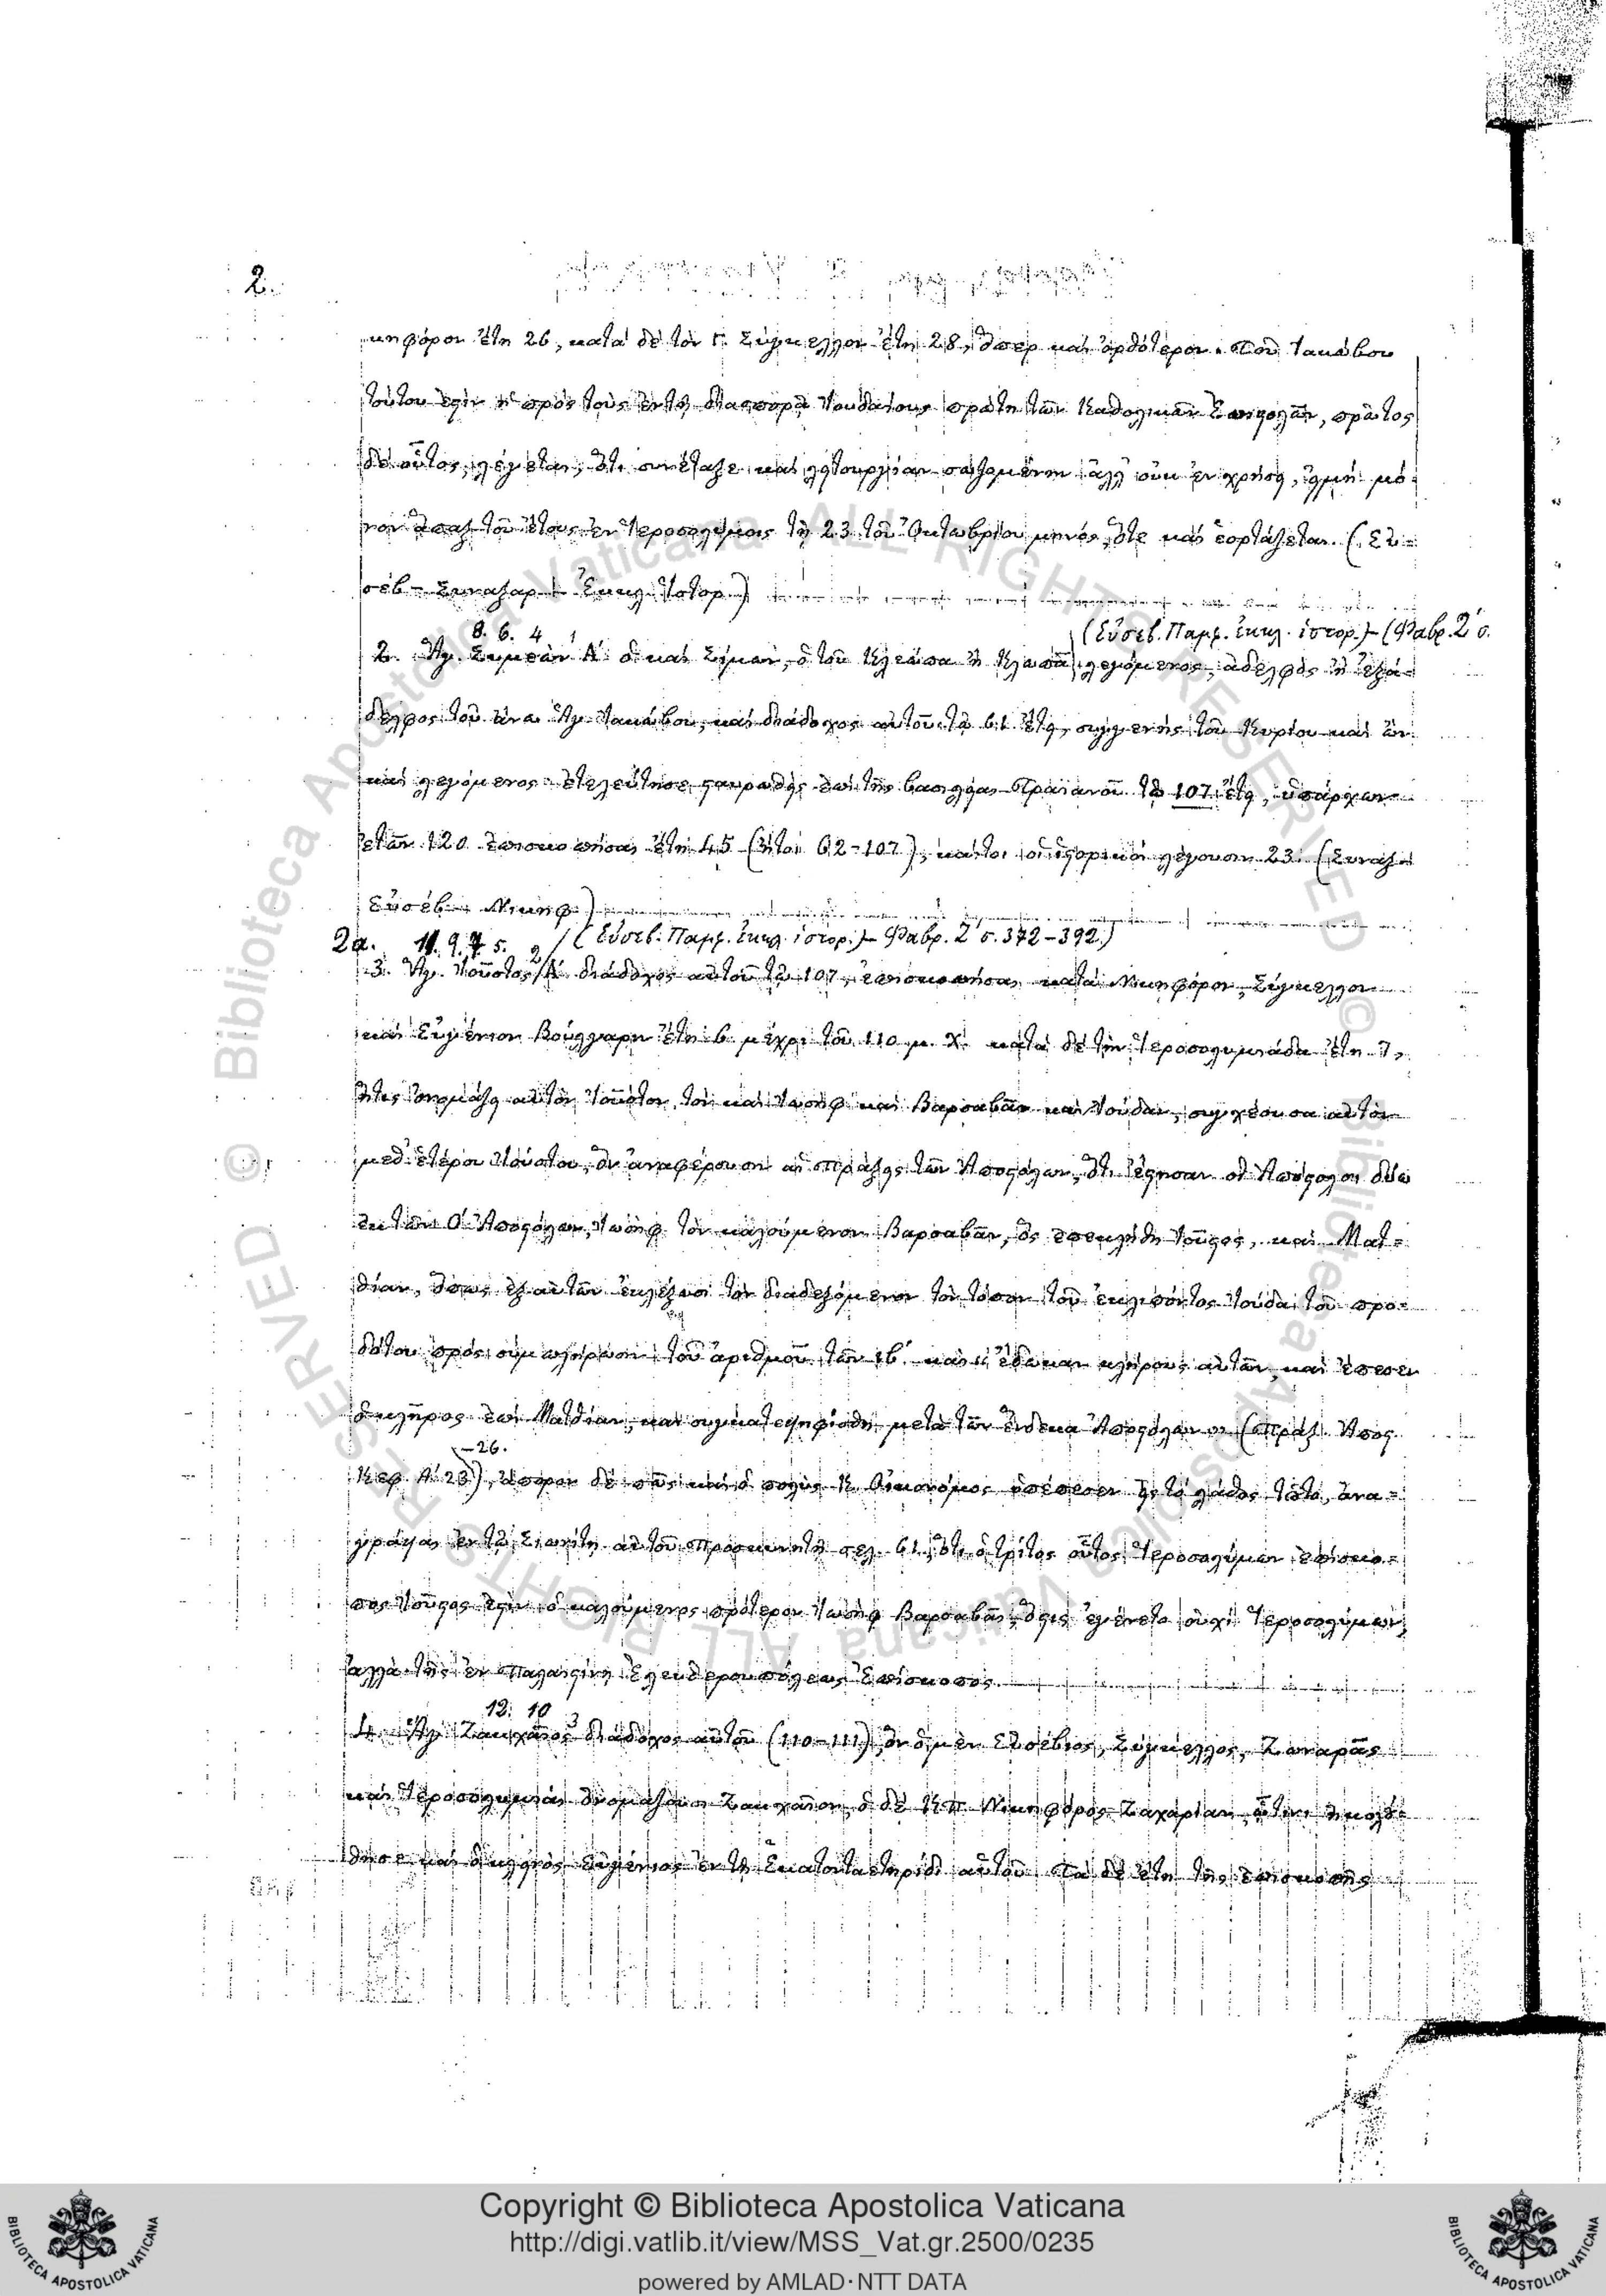 2.
κηφόρον ἔτη 26, κατὰ δὲ τὸν Γ. Σύγκελλον ἔτη 28, ὅπερ καὶ ὀρθότερον. Τοῦ Ἰακώβου
τούτου ἐστὶν ἡ πρὸς τοὺς ἐν τῇ διασπορᾷ Ἰουδαίους πρώτη τῶν Καθολικῶν Ἐπιστολῶν, πρῶτος
δὲ οὗτος λέγεται, ὅτι συνέταξε καὶ λειτουργίαν σωζομένην ἀλλ' οὐκ ἐν χρήσει, εἰμὴ μό-
νον ἅπαξ τοῦ ἔτους ἐν Ἱεροσολύμοις τῇ 23 τοῦ Ὀκτωβρίου μηνός, ὅτε καὶ ἑορτάζεται. (Εὐ-
σέβ – Συναξαρ – Ἐκκλ. Ἱστορ.)
8. 6. 4 1 (Εὐσεβ. Παμφ. ἐκκλ. ἱστορ.) – (Φαβρ. Ζ΄ σ.
2. Ἅγ. Συμεὼν Α΄ ὁ καὶ Σίμων, ὁ τοῦ Κλεώπα ἢ Κλωπᾶ λεγόμενος, ἀδελφὸς ἢ ἐξά-
δελφος τοῦ ἄνω Ἁγ. Ἰακώβου, καὶ διάδοχος αὐτοῦ τῷ 61 ἔτει, συγγενὴς τοῦ Κυρίου καὶ ὢν
καὶ λεγόμενος· ἐτελεύτησε σταυρωθεὶς ἐπὶ τῆς βασιλείας Τραϊανοῦ τῷ 107 ἔτει, ὑπάρχων
ἐτῶν 120 ἐπισκοπήσας ἔτη 45 (ἤτοι 62-107), καίτοι οἱ ἱστορικοὶ λέγουσιν 23. (Συναξ –
Εὐσέβ – Νικηφ.)
2α. 11. 9. 7 5. 2 (Εὐσεβ. Παμφ. ἐκκλ. ἱστορ.) – Φαβρ. Ζ΄ σ. 372-392.)
3. Ἅγ. Ἰοῦστος Α΄ διάδοχος αὐτοῦ τῷ 107, ἐπισκοπήσας κατὰ Νικηφόρον, Σύγκελλον
καὶ Εὐγένιον Βούλγαρην ἔτη 6 μέχρι τοῦ 110 μ. Χ. κατὰ δὲ τὴν Ἱεροσολυμιάδα ἔτη 7,
ἥτις ὀνομάζει αὐτὸν Ἰοῦστον, τὸν καὶ Ἰωσὴφ καὶ Βαρσαβᾶν καὶ Ἰούδαν, συγχέουσα αὐτὸν
μεθ' ἑτέρου Ἰούστου, ὃν ἀναφέρουσιν αἱ Πράξεις τῶν Ἀποστόλων, ὅτι ἔστησαν οἱ Ἀπόστολοι δύω
ἐκ τῶν Ο΄ Ἀποστόλων, Ἰωσὴφ τὸν καλούμενον Βαρσαβᾶν, ὃς ἐπεκλήθη Ἰοῦστος, καὶ Ματ-
θίαν, ὅπως ἐξ αὐτῶν ἐκλέξωσι τὸν διαδεξόμενον τὸν τόπον τοῦ ἐκλιπόντος Ἰούδα τοῦ προ-
δότου πρὸς συμπλήρωσιν τοῦ ἀριθμοῦ τῶν ιβ΄ καὶ " ἔδωκαν κλήρους αὐτῶν, καὶ ἔπεσεν
ὁ κλῆρος ἐπὶ Ματθίαν, καὶ συγκατεψηφίσθη μετὰ τῶν ἕνδεκα Ἀποστόλων " (Πράξ. Ἀποστ.
– 26.
Κεφ. Α΄ 23), ἄπορον δὲ πῶς καὶ ὁ πολὺς Κ. Οἰκονόμος ὑπέπεσεν εἰς τὸ λάθος τοῦτο, ἀνα-
γράψας ἐν τῷ Σιωνίτῃ αὐτοῦ Προσκυνητῇ σελ. 61, ὅτι ὁ τρίτος οὗτος Ἱεροσολύμων ἐπίσκο-
πος Ἰοῦστος ἐστὶν ὁ καλούμενος πρότερον Ἰωσὴφ Βαρσαβᾶς, ὅστις ἐγένετο οὐχὶ Ἱεροσολύμων,
ἀλλὰ τῆς ἐν Παλαιστίνῃ Ἐλευθερουπόλεως Ἐπίσκοπος.
12. 10 3
4. Ἅγ. Ζακχαῖος διάδοχος αὐτοῦ (110-111), ὃν ὁ μὲν Εὐσέβιος, Σύγκελλος, Ζωναρᾶς
καὶ Ἱεροσολυμιὰς ὀνομάζουσι Ζακχαῖον, ὁ δὲ Κ.Π. Νικηφόρος Ζαχαρίαν, ᾧτινι ἠκολού-
θησε καὶ ὁ κλεινὸς Εὐγένιος ἐν τῇ Ἑκατονταετηρίδι αὐτοῦ. Τὰ δὲ ἔτη τῆς ἐπισκοπῆς
© Biblioteca Apostolica Vaticana ALL RIGHTS RESERVED
© Biblioteca Apostolica Vaticana ALL RIGHTS RESERVED
Copyright © Biblioteca Apostolica Vaticana
http://digi.vatlib.it/view/MSS_Vat.gr.2500/0235
powered by AMLAD·NTT DATA
BIBLIOTECA APOSTOLICA VATICANA
BIBLIOTECA APOSTOLICA VATICANA